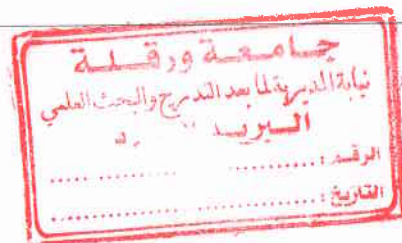 جامعة ورقلة
نيابة المديرية لما بعد التدرج والبحث العلمي
البريد
الرقم : ..................
التاريخ : ..................